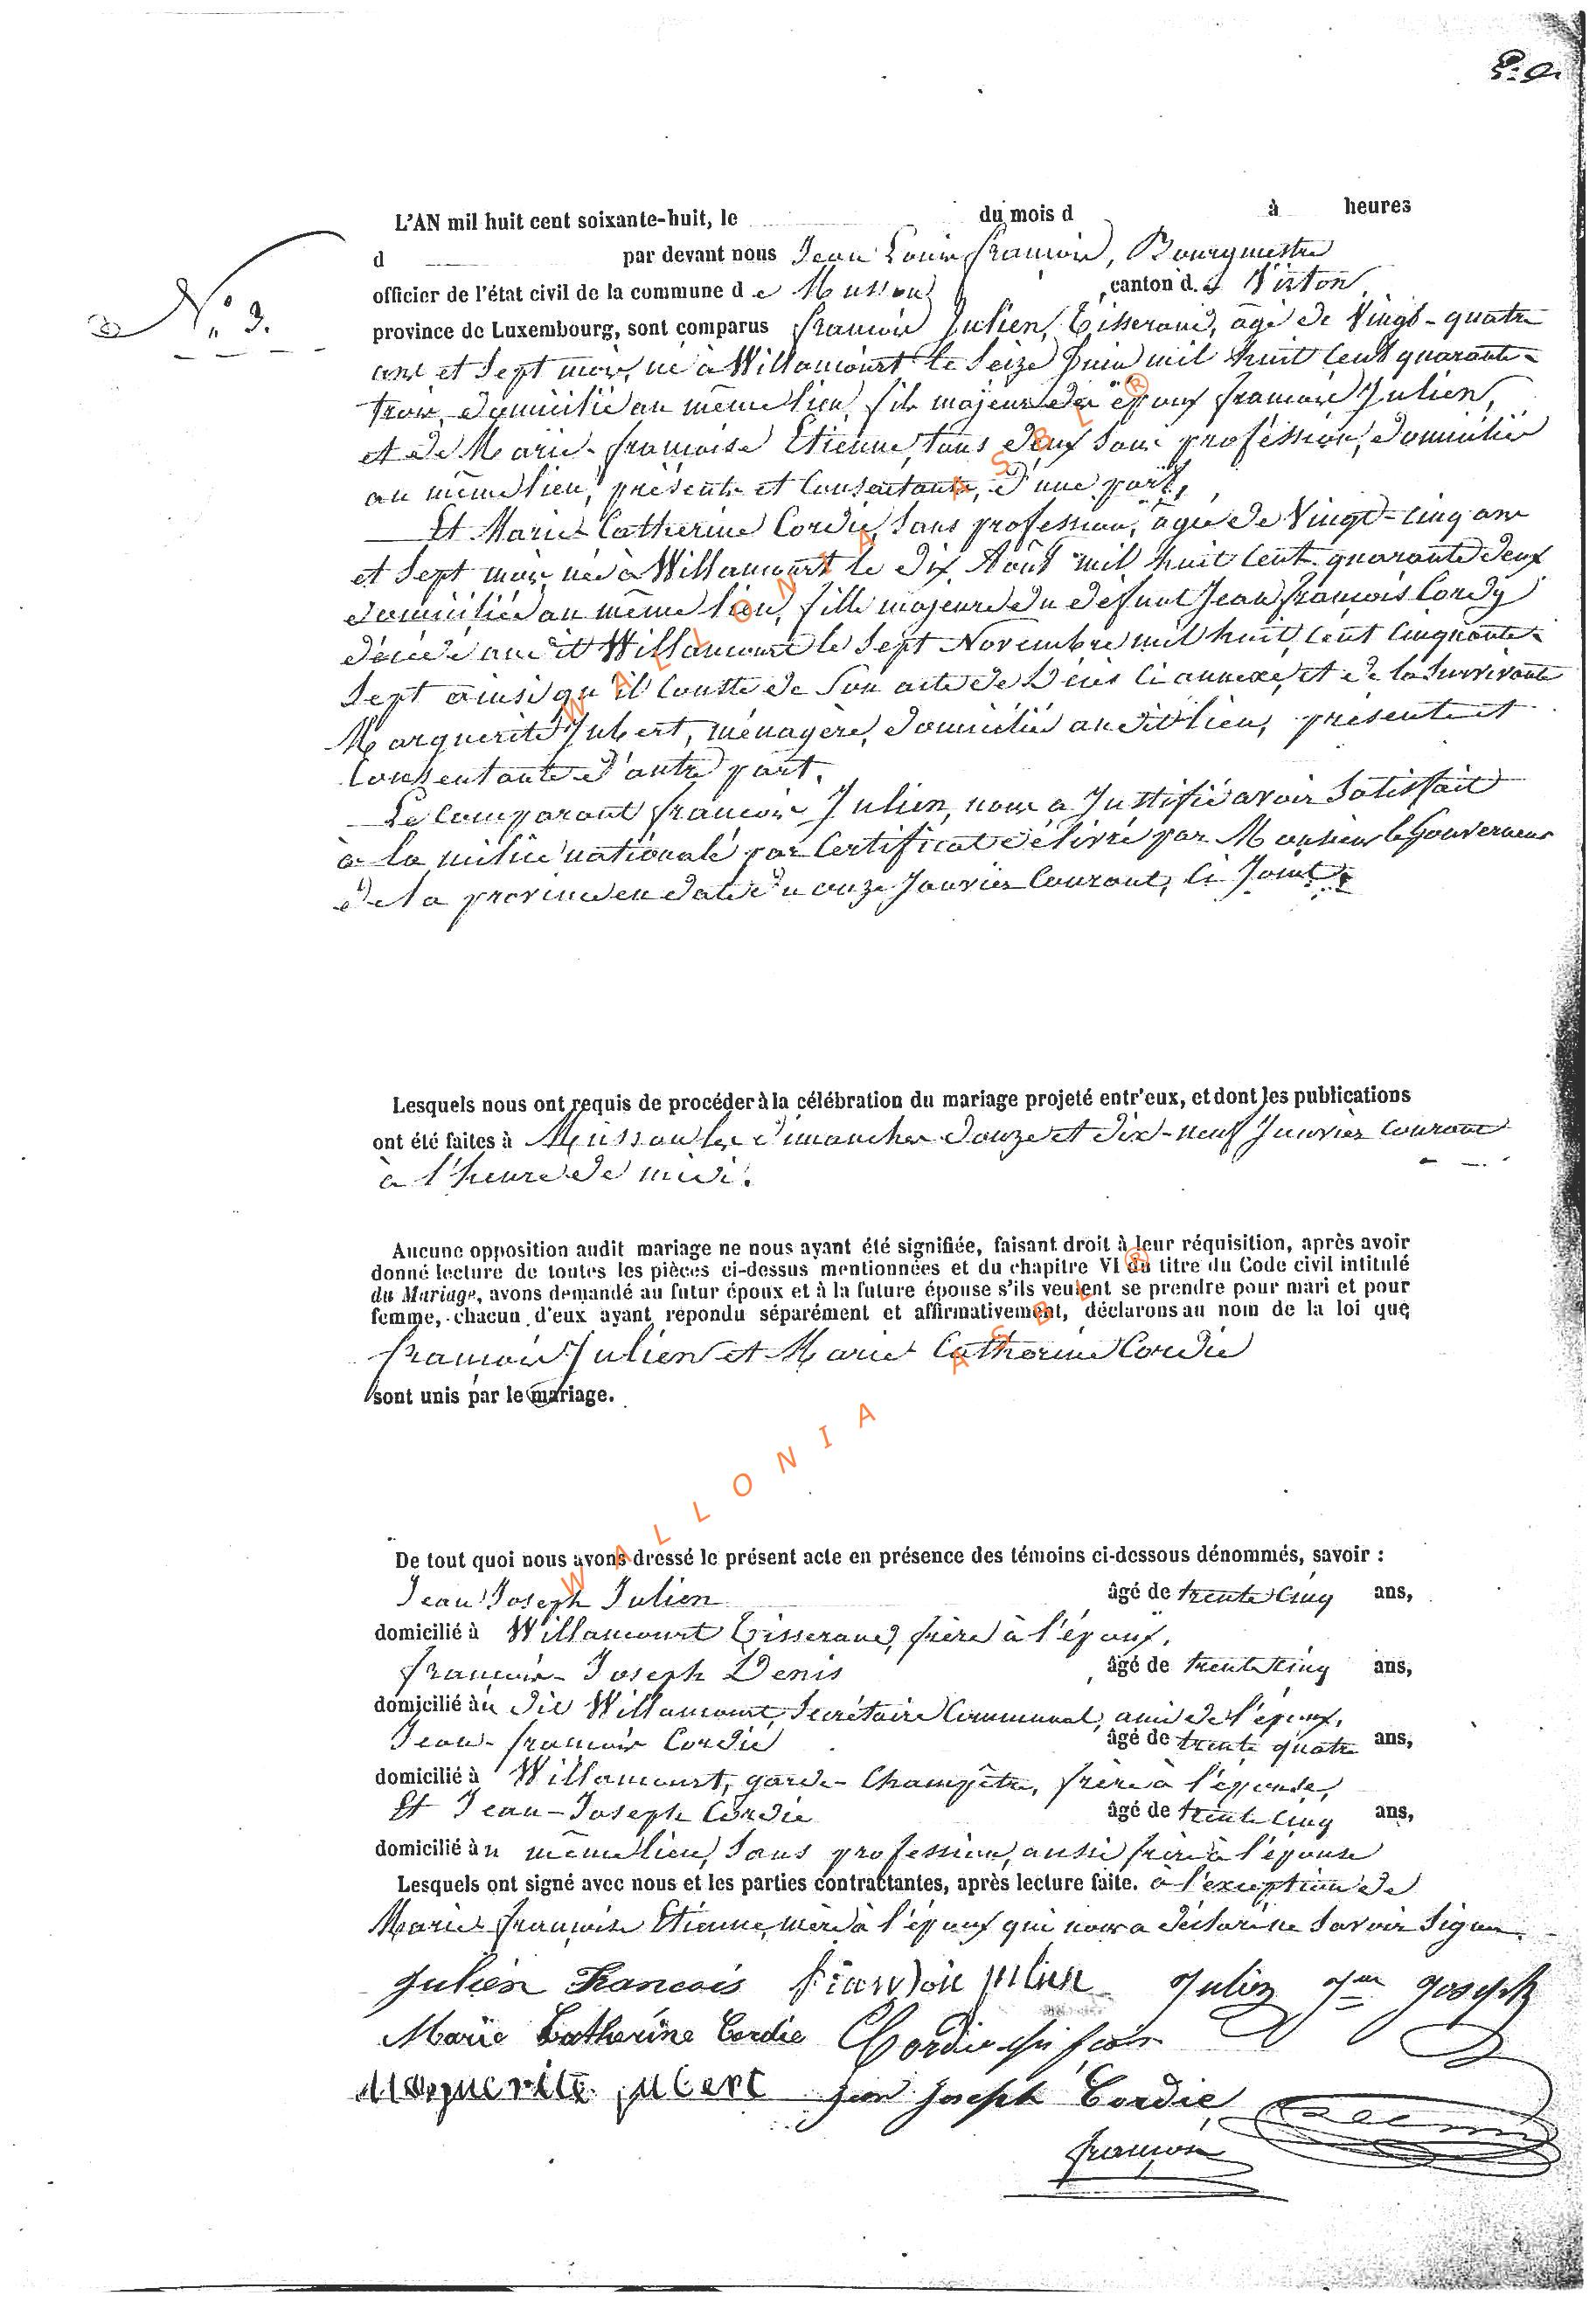 L'AN mil huit cent soixante-huit, le du mois d à heures
d par devant nous Jean Louis François, Bourgmestre
officier de l'état civil de la commune d e Musson, canton d. e Virton,
N° 3.
province de Luxembourg, sont comparus François Julien, Tisserand, âgé de Vingt-quatre
ans et Sept mois, né à Willancourt le Seize Juin mil huit Cent quarante-
trois, domicilié au même lieu, fils majeur des époux François Julien,
et de Marie-françoise Etienne, tous deux Sans profession, domiciliés
au même lieu, présents et Consentants, d'une part,
Et Marie Catherine Cordie, Sans profession, âgée de Vingt-cinq ans
et Sept mois, née à Willancourt le dix Août mil huit Cent quarante deux
domiciliée au même lieu, fille majeure du défunt Jean François Cordy
décédé au dit Willancourt le Sept Novembre mil huit cent Cinquante-
Sept ainsi qu'il Conste de Son acte de Décès Ci annexé, et de la Survivante
Marguerite Jubert, ménagère, domiciliée au dit lieu, présente et
Consentante d'autre part.
Le Comparant François Julien, nous a Justifié avoir Satisfait
à la milice nationale par Certificat délivré par Monsieur le Gouverneur
de la province en date du onze Janvier Courant, Ci Joint.
Lesquels nous ont requis de procéder à la célébration du mariage projeté entr'eux, et dont les publications
ont été faites à Musson les dimanches douze et dix-neuf Janvier Courant
à l'heure de midi.
Aucune opposition audit mariage ne nous ayant été signifiée, faisant droit à leur réquisition, après avoir
donné lecture de toutes les pièces ci-dessus mentionnées et du chapitre VI du titre du Code civil intitulé
du Mariage, avons demandé au futur époux et à la future épouse s'ils veulent se prendre pour mari et pour
femme, chacun d'eux ayant repondu séparément et affirmativement, déclarons au nom de la loi que
François Julien et Marie Catherine Cordie
sont unis par le mariage.
WALLONIA ASBL ®
WALLONIA ASBL ®
De tout quoi nous avons dressé le présent acte en présence des témoins ci-dessous dénommés, savoir :
Jean Joseph Julien âgé de trente Cinq ans,
domicilié à Willancourt Tisserand, frère à l'époux,
François-Joseph Denis âgé de trente Cinq ans,
domicilié àu dit Willancourt, Secrétaire Communal, ami de l'époux,
Jean-François Cordié âgé de trente quatre ans,
domicilié à Willancourt, garde-Champêtre, frère à l'épouse,
Et Jean-Joseph Cordie âgé de trente Cinq ans,
domicilié àu même lieu, Sans profession, aussi frère à l'épouse
Lesquels ont signé avec nous et les parties contractantes, après lecture faite. à l'exception de
Marie-françoise Etienne, mère à l'époux qui nous a déclaré ne Savoir Signer.
Julien Francois françois julien Julien Jean Joseph
Marie Catherine Cordie Cordie
Marguerite jubert Jean Joseph Cordie Denis
François